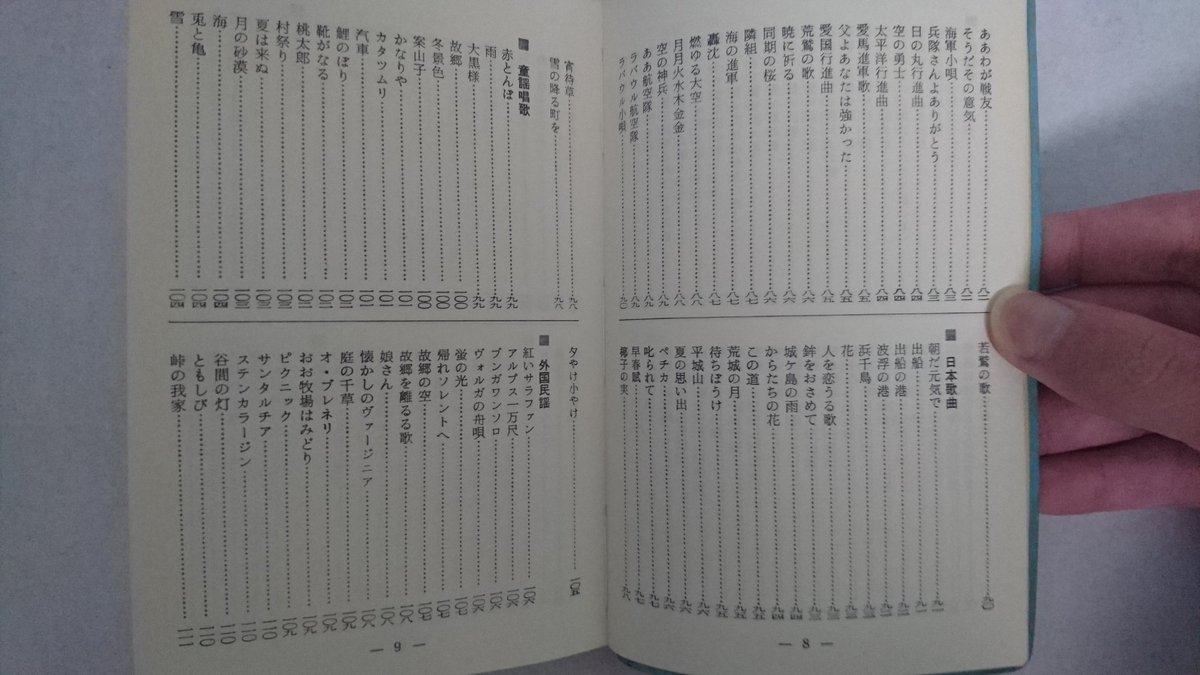 ああわが戦友
そうだその意気
海軍小唄
兵隊さんよありがとう 八三
日の丸行進曲 八三
空の勇士 八四
太平洋行進曲 八四
愛馬進軍歌 八五
父よあなたは強かった 八五
愛国行進曲 八五
荒鷲の歌 八六
暁に祈る 八六
同期の桜 八六
隣組 八七
海の進軍 八七
轟沈 八七
燃ゆる大空 八八
月月火水木金金 八八
空の神兵 八九
ああ航空隊 八九
ラバウル航空隊 八九
ラバウル小唄 九〇
若鷲の歌 九〇
日本歌曲
朝だ元気で 九一
出船 九一
出船の港
波浮の港
浜千鳥
花
人を恋うる歌
鉾をおさめて
城ケ島の雨 九四
からたちの花 九四
この道 九五
荒城の月 九五
待ちぼうけ 九五
平城山 九六
夏の思い出 九六
ペチカ 九六
叱られて 九七
早春賦 九七
椰子の実 九八
— 8 —
宵待草 九八
雪の降る町を 九八
童謡唱歌
赤とんぼ 九九
雨 九九
大黒様 九九
故郷 一〇〇
冬景色 一〇〇
案山子 一〇〇
かなりや 一〇一
カタツムリ 一〇一
汽車 一〇一
鯉のぼり 一〇二
靴がなる 一〇二
桃太郎 一〇二
村祭り 一〇三
夏は来ぬ 一〇三
月の砂漠 一〇三
海 一〇四
兎と亀 一〇四
雪 一〇四
夕やけ小やけ 一〇五
外国民謡
紅いサラファン 一〇六
アルプス一万尺 一〇六
ブンガワンソロ 一〇六
ヴォルガの舟唄 一〇六
蛍の光 一〇七
帰れソレントへ 一〇七
故郷の空 一〇七
故郷を離るる歌 一〇八
娘さん 一〇八
懐かしのヴァージニア 一〇八
庭の千草 一〇八
オ・ブレネリ 一〇九
おお牧場はみどり 一〇九
ピクニック 一〇九
サンタルチア 一一〇
ステンカラージン 一一〇
谷間の灯 一一〇
ともしび 一一〇
峠の我家 一一一
— 9 —